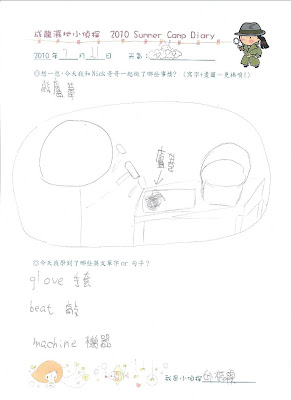 成龍濕地小偵探 2010 Summer Camp Diary
2010年7月11日 天氣:
◎想一想,今天我和Nick哥哥一起做了哪些事情?(寫字+畫圖一更棒唷!)
敲蘆葦
蘆葦
◎今天我學到了哪些英文單字or句子?
glove 手套
beat 敲
machine 機器
我是小偵探